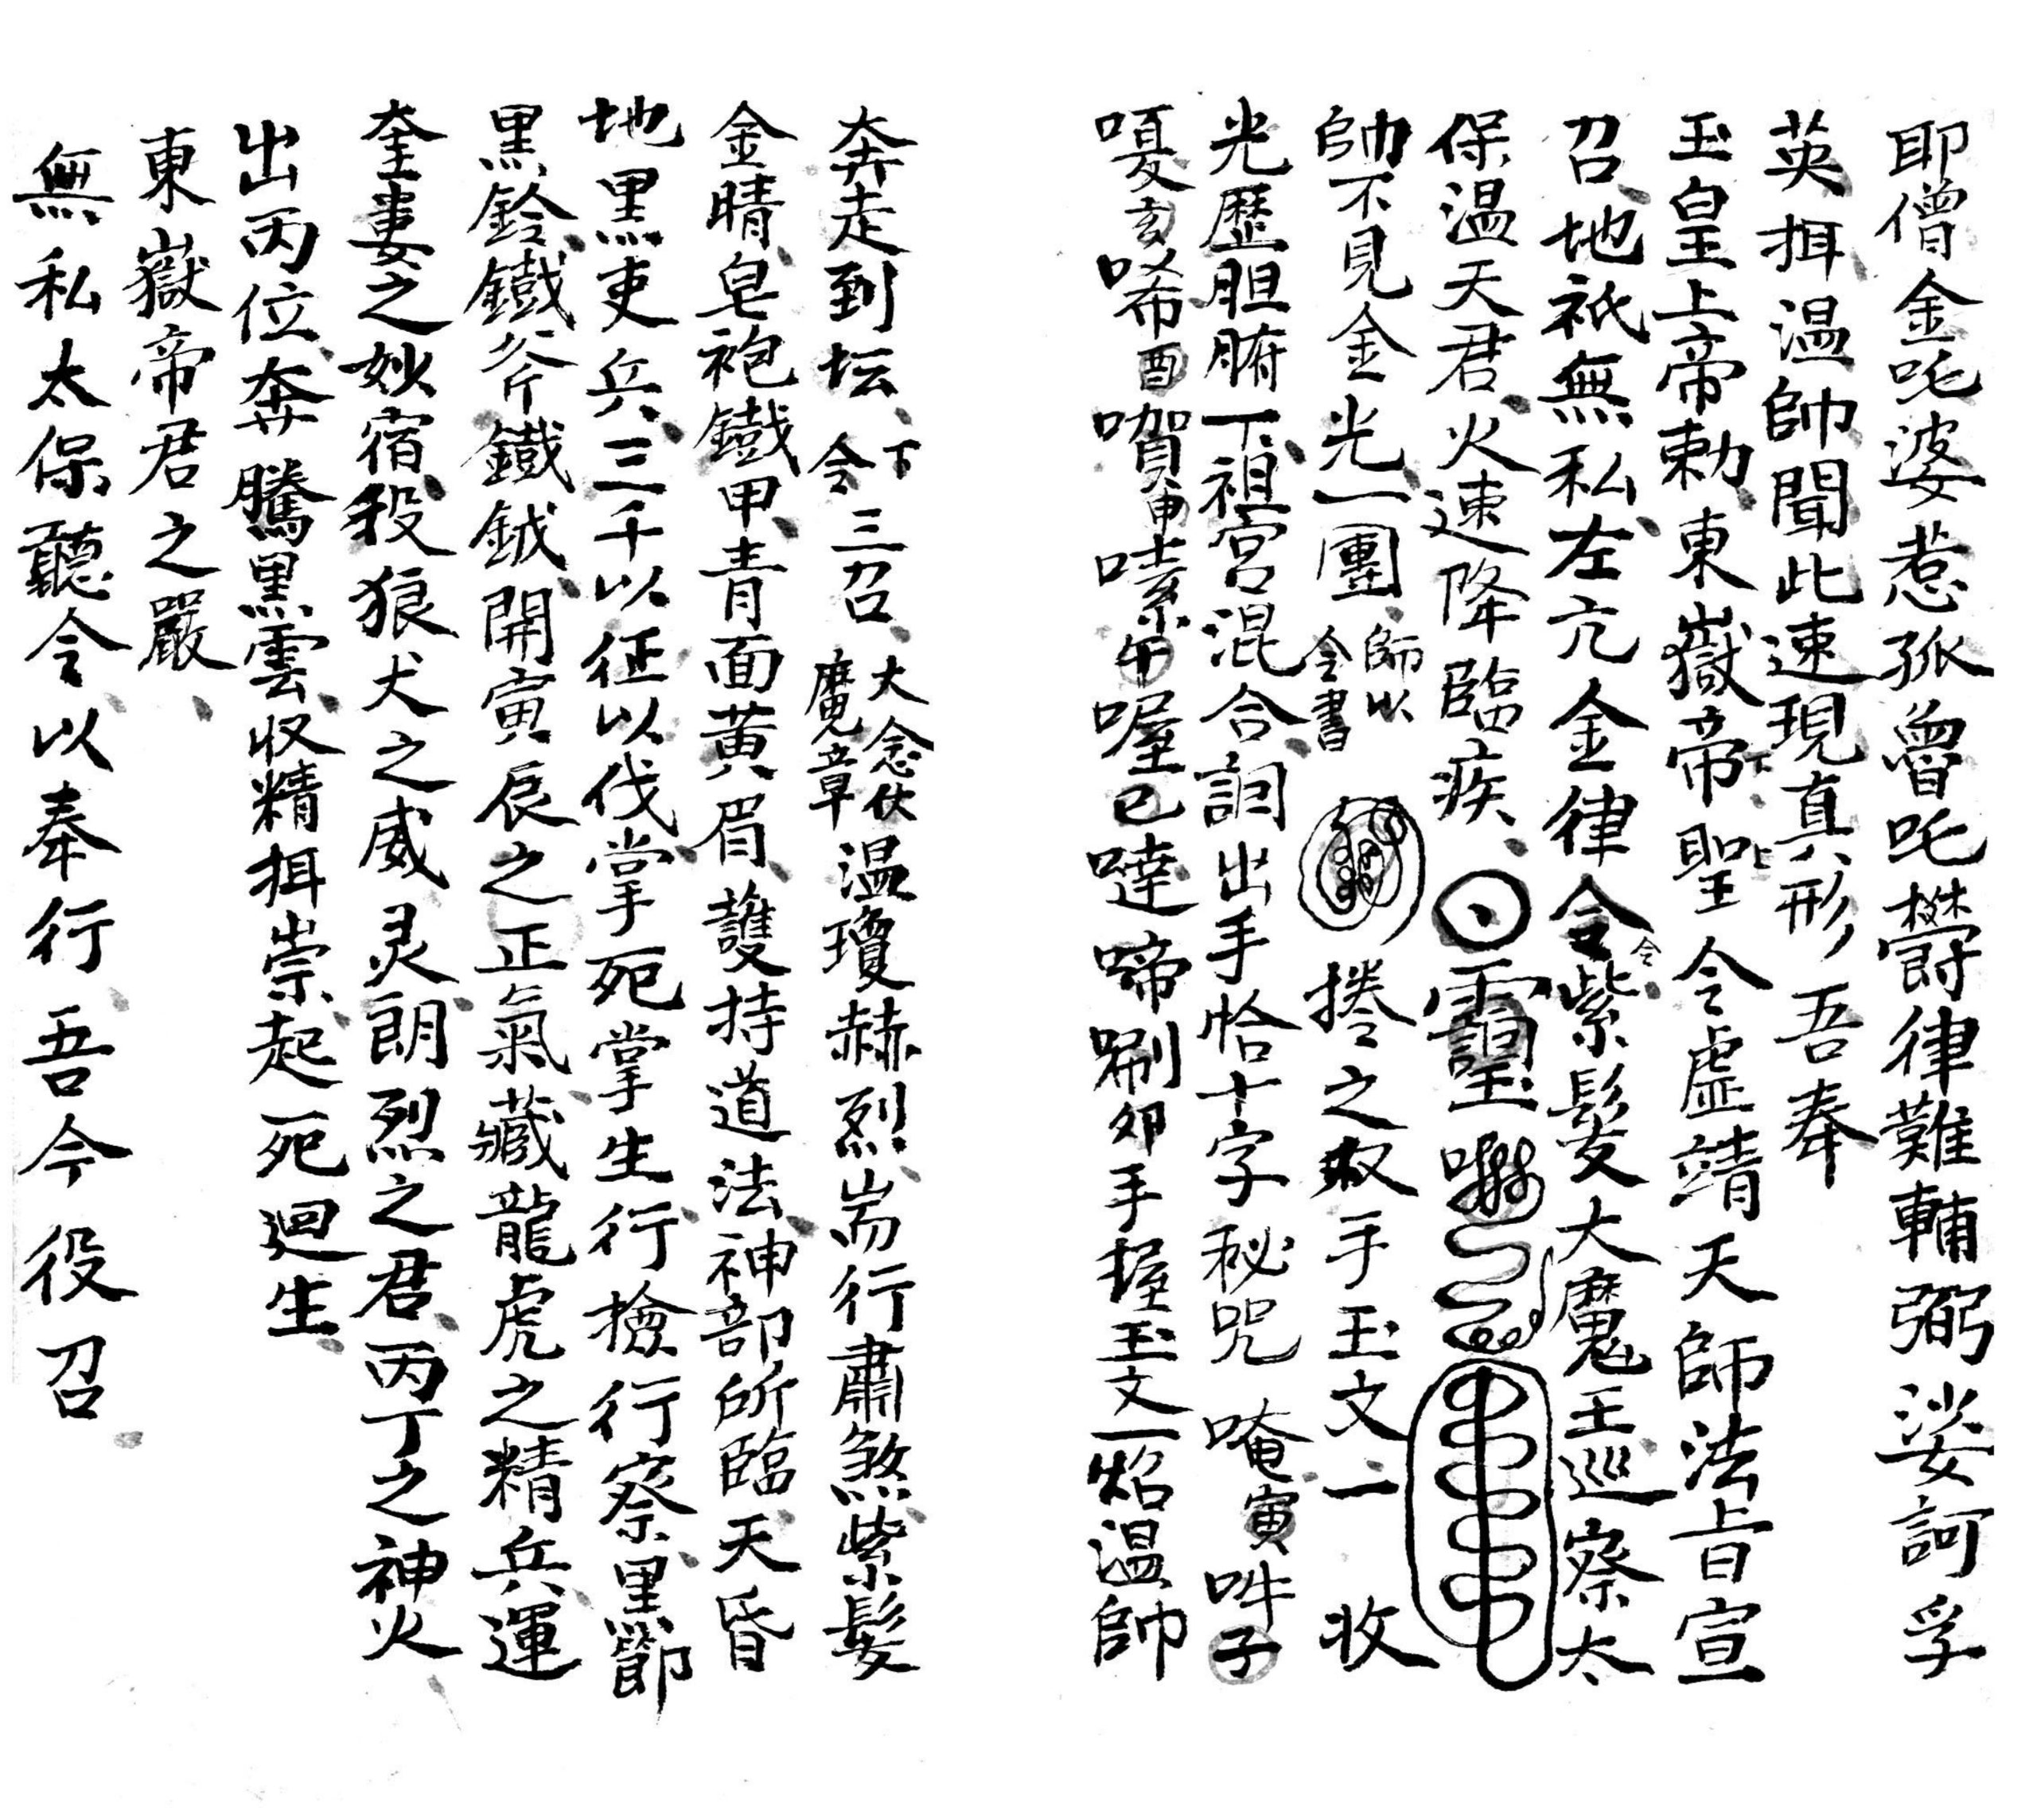 耶僧金吒婆惹孤曾吒欝律難輔弼娑訶孚
英挕温帥聞此速現真形吾奉
玉皇上帝勅下東嶽帝聖上令虛靖天師法旨宣
召地祇無私左亢金律令紫髮大魔王巡察太
保温天君火速降臨疾
帥不見金光一團師以令書捲之放手玉文一收
光歷胆腑下祖宮混合詞出手恰十字秘咒唵寅吽子
嗄亥唏酉㗎申嗉午喔巳噠啼唰卯手握玉文一焰温帥
奔走到坛下令三召大念伏魔章温瓊赫烈耑行肅煞紫髮
金睛皂袍鐵甲青面黃眉護持道法神部所臨天昏
地黑吏兵三千以征以伐掌死掌生行撿行察黑節
黑鈴鐵斧鐵鉞開寅辰之正氣藏龍虎之精兵運
奎婁之妙宿役狼犬之威灵朗烈之君丙丁之神火
出丙位奔騰黑雲收精挕祟起死迴生
東嶽帝君之嚴
無私太保聽令以奉行吾今役召